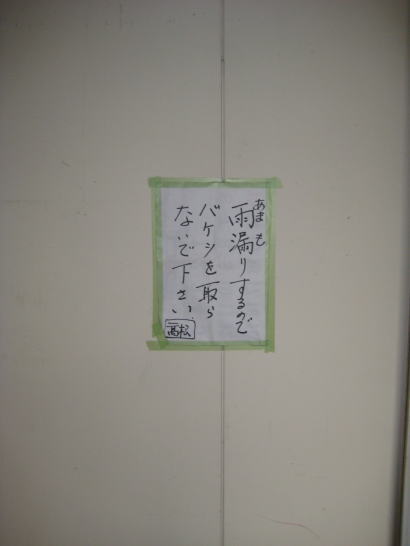 あまも
雨漏りするので
バケシを取ら
ないで下さい
高松